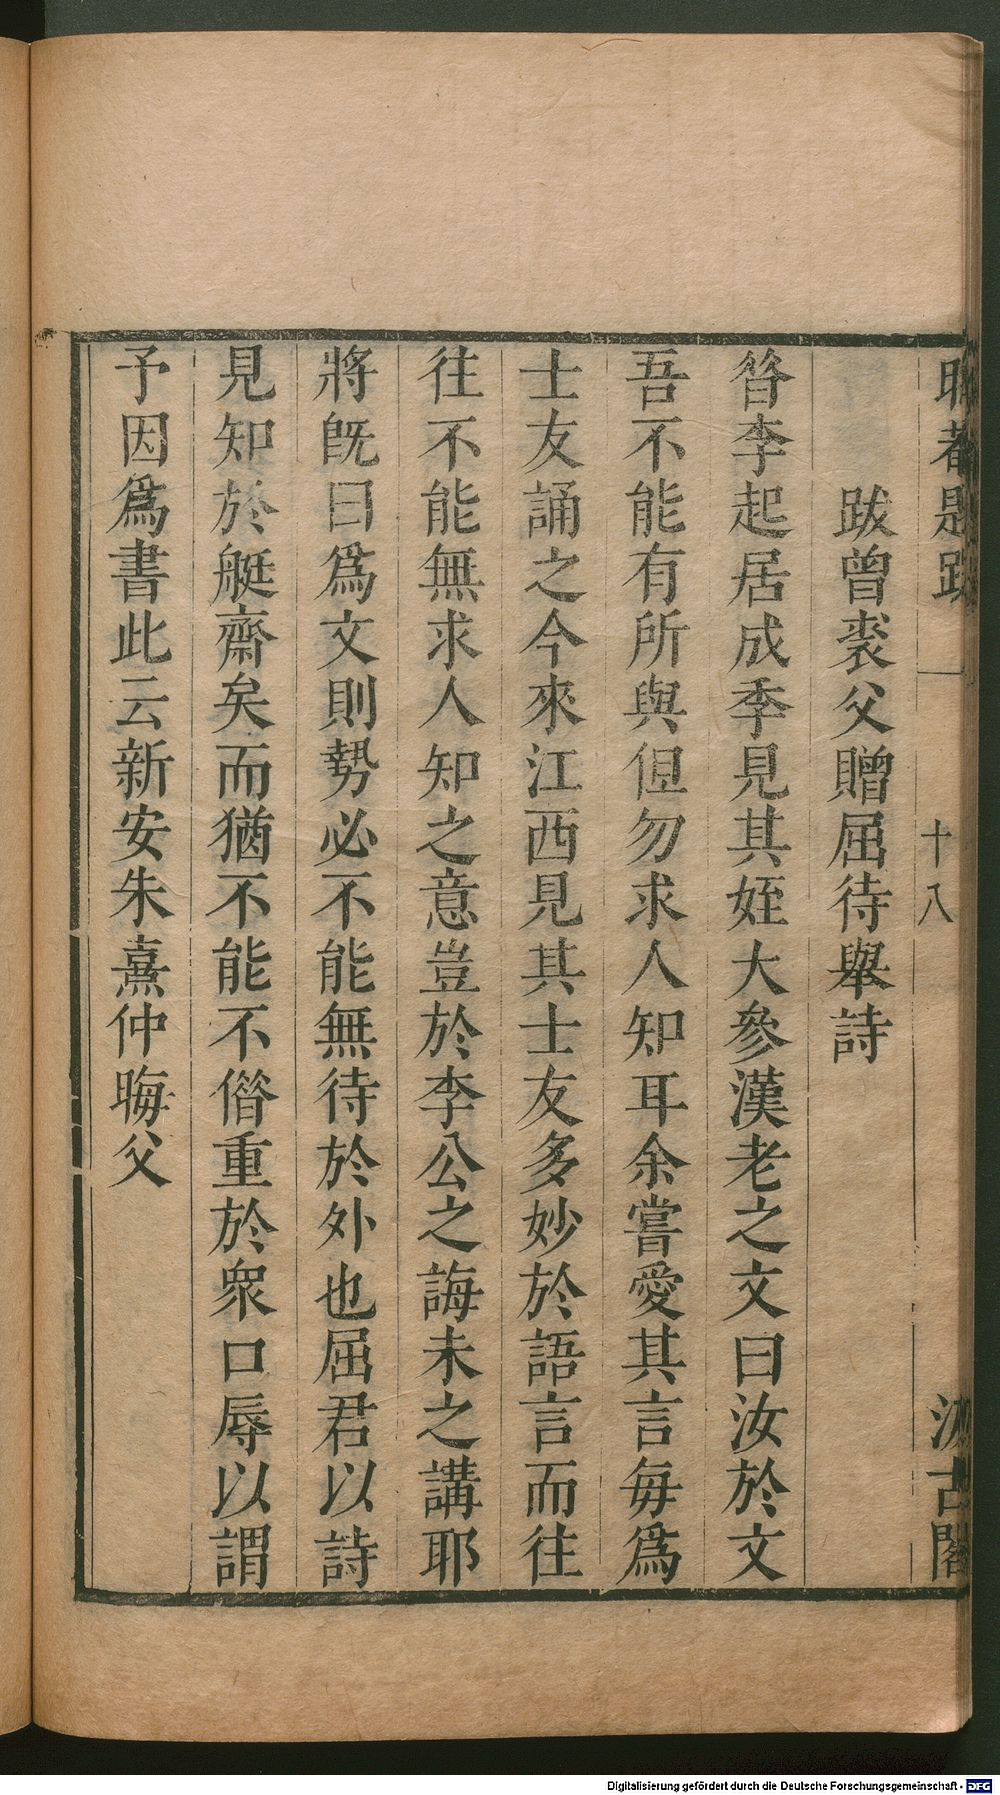 晦菴題跋 一 十八 汲古閣
跋曾裘父贈屈待舉詩
昝李起居成季見其姪大參漢老之文曰汝於文
吾不能有所與但勿求人知耳余嘗愛其言每爲
士友誦之今來江西見其士友多妙於語言而往
往不能無求人知之意豈於李公之誨未之講耶
將旣曰爲文則勢必不能無待於外也屈君以詩
見知於艇齋矣而猶不能不僭重於衆口辱以謂
予因爲書此云新安朱熹仲晦父
Digitalisierung gefördert durch die Deutsche Forschungsgemeinschaft - DFG